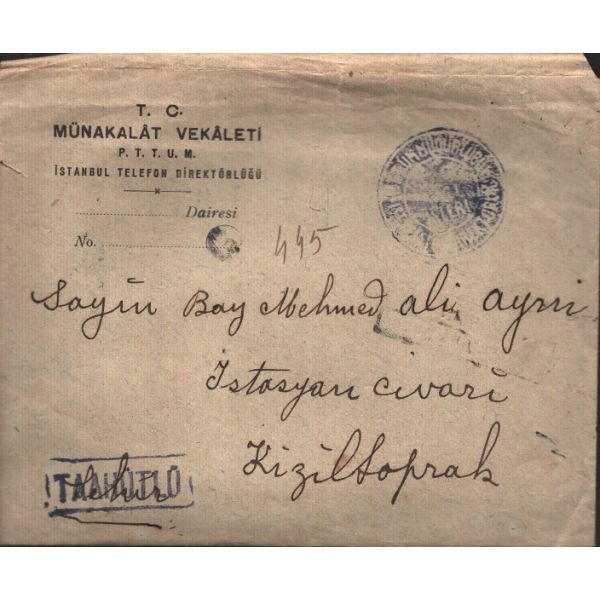 T. C.
MÜNAKALÂT VEKÂLETİ
P. T. T. U. M.
İSTANBUL TELEFON DİREKTÖRLÜĞÜ
Dairesi
No. 445
Sayin Bay Mehmed ali ayni
İstasyan civari
Kizilsoprak
TAAHÜTLÜ
Şehir